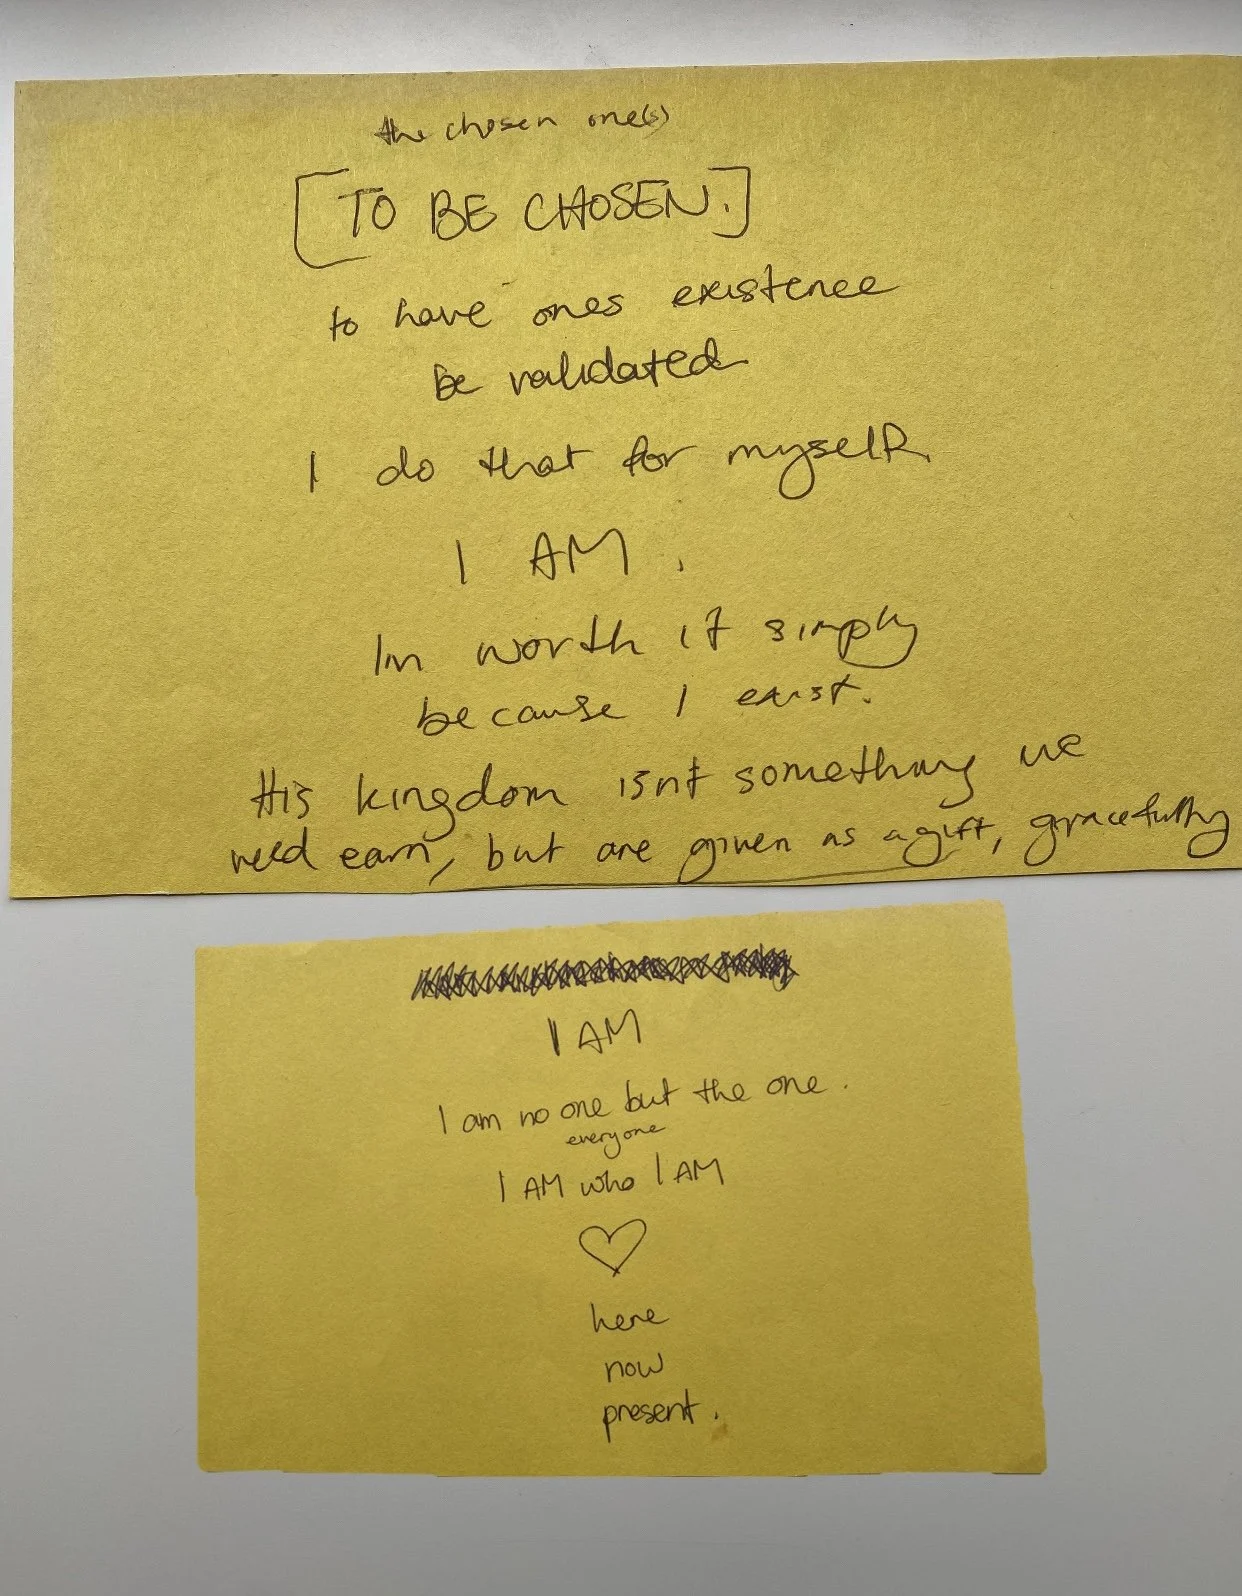 the chosen one(s)
[TO BE CHOSEN.]
to have ones existence
be validated
I do that for myself.
I AM.
Im worth it simply
because I exist.
His kingdom isnt something we
need earn, but are given as a gift, gracefully
I AM
I am no one but the one.
everyone
I AM who I AM
here
now
present.